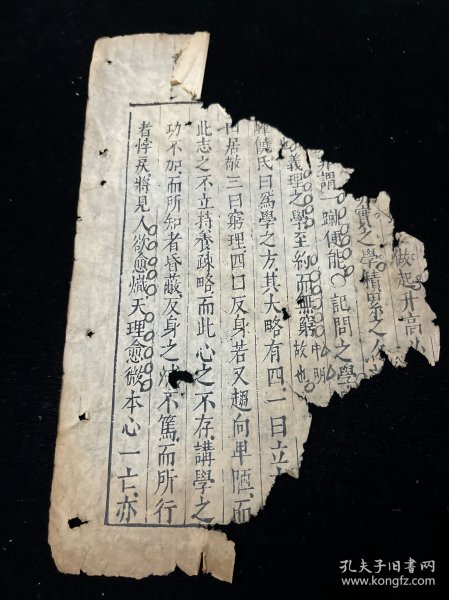 做起升高
實之學精思之
謂一蹴便能〇記問之學
義理之學至約而無窮故也
饒氏曰為學之方其大略有四一曰立
曰居敬三曰窮理四曰反身若又趨向卑陋而
此志之不立持養疎略而此心之不存講學之
功不加而所知者昏蔽反身之不篤而所行
者悖戾將見人欲愈熾天理愈微本心一亡亦
孔夫子旧书网
www.kongfz.com